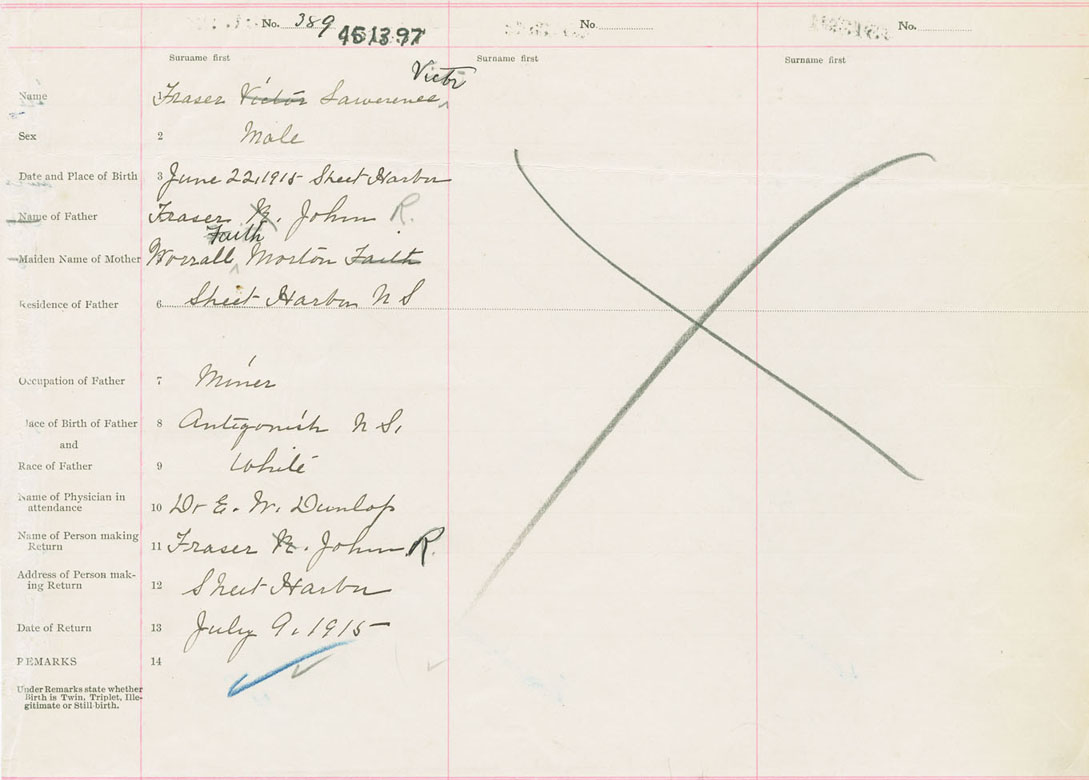 No. 389 No. No.
451397
Surname first Surname first Surname first
Victor
Name 1 Fraser Victor Lawerence
Sex 2 Male
Date and Place of Birth 3 June 22, 1915 Sheet Harbor
Name of Father Fraser R. John R.
Faith
Maiden Name of Mother Worrall, Morton Faith
Residence of Father 6 Sheet Harbor N S
Occupation of Father 7 Miner
lace of Birth of Father 8 Antigonish N S.
and
Race of Father 9 White
Name of Physician in
attendance 10 Dr E. W. Dunlop
Name of Person making
Return 11 Fraser R. John R.
Address of Person mak-
ing Return 12 Sheet Harbor
Date of Return 13 July 9, 1915
REMARKS 14
Under Remarks state whether
Birth is Twin, Triplet, Ille-
gitimate or Still-birth.